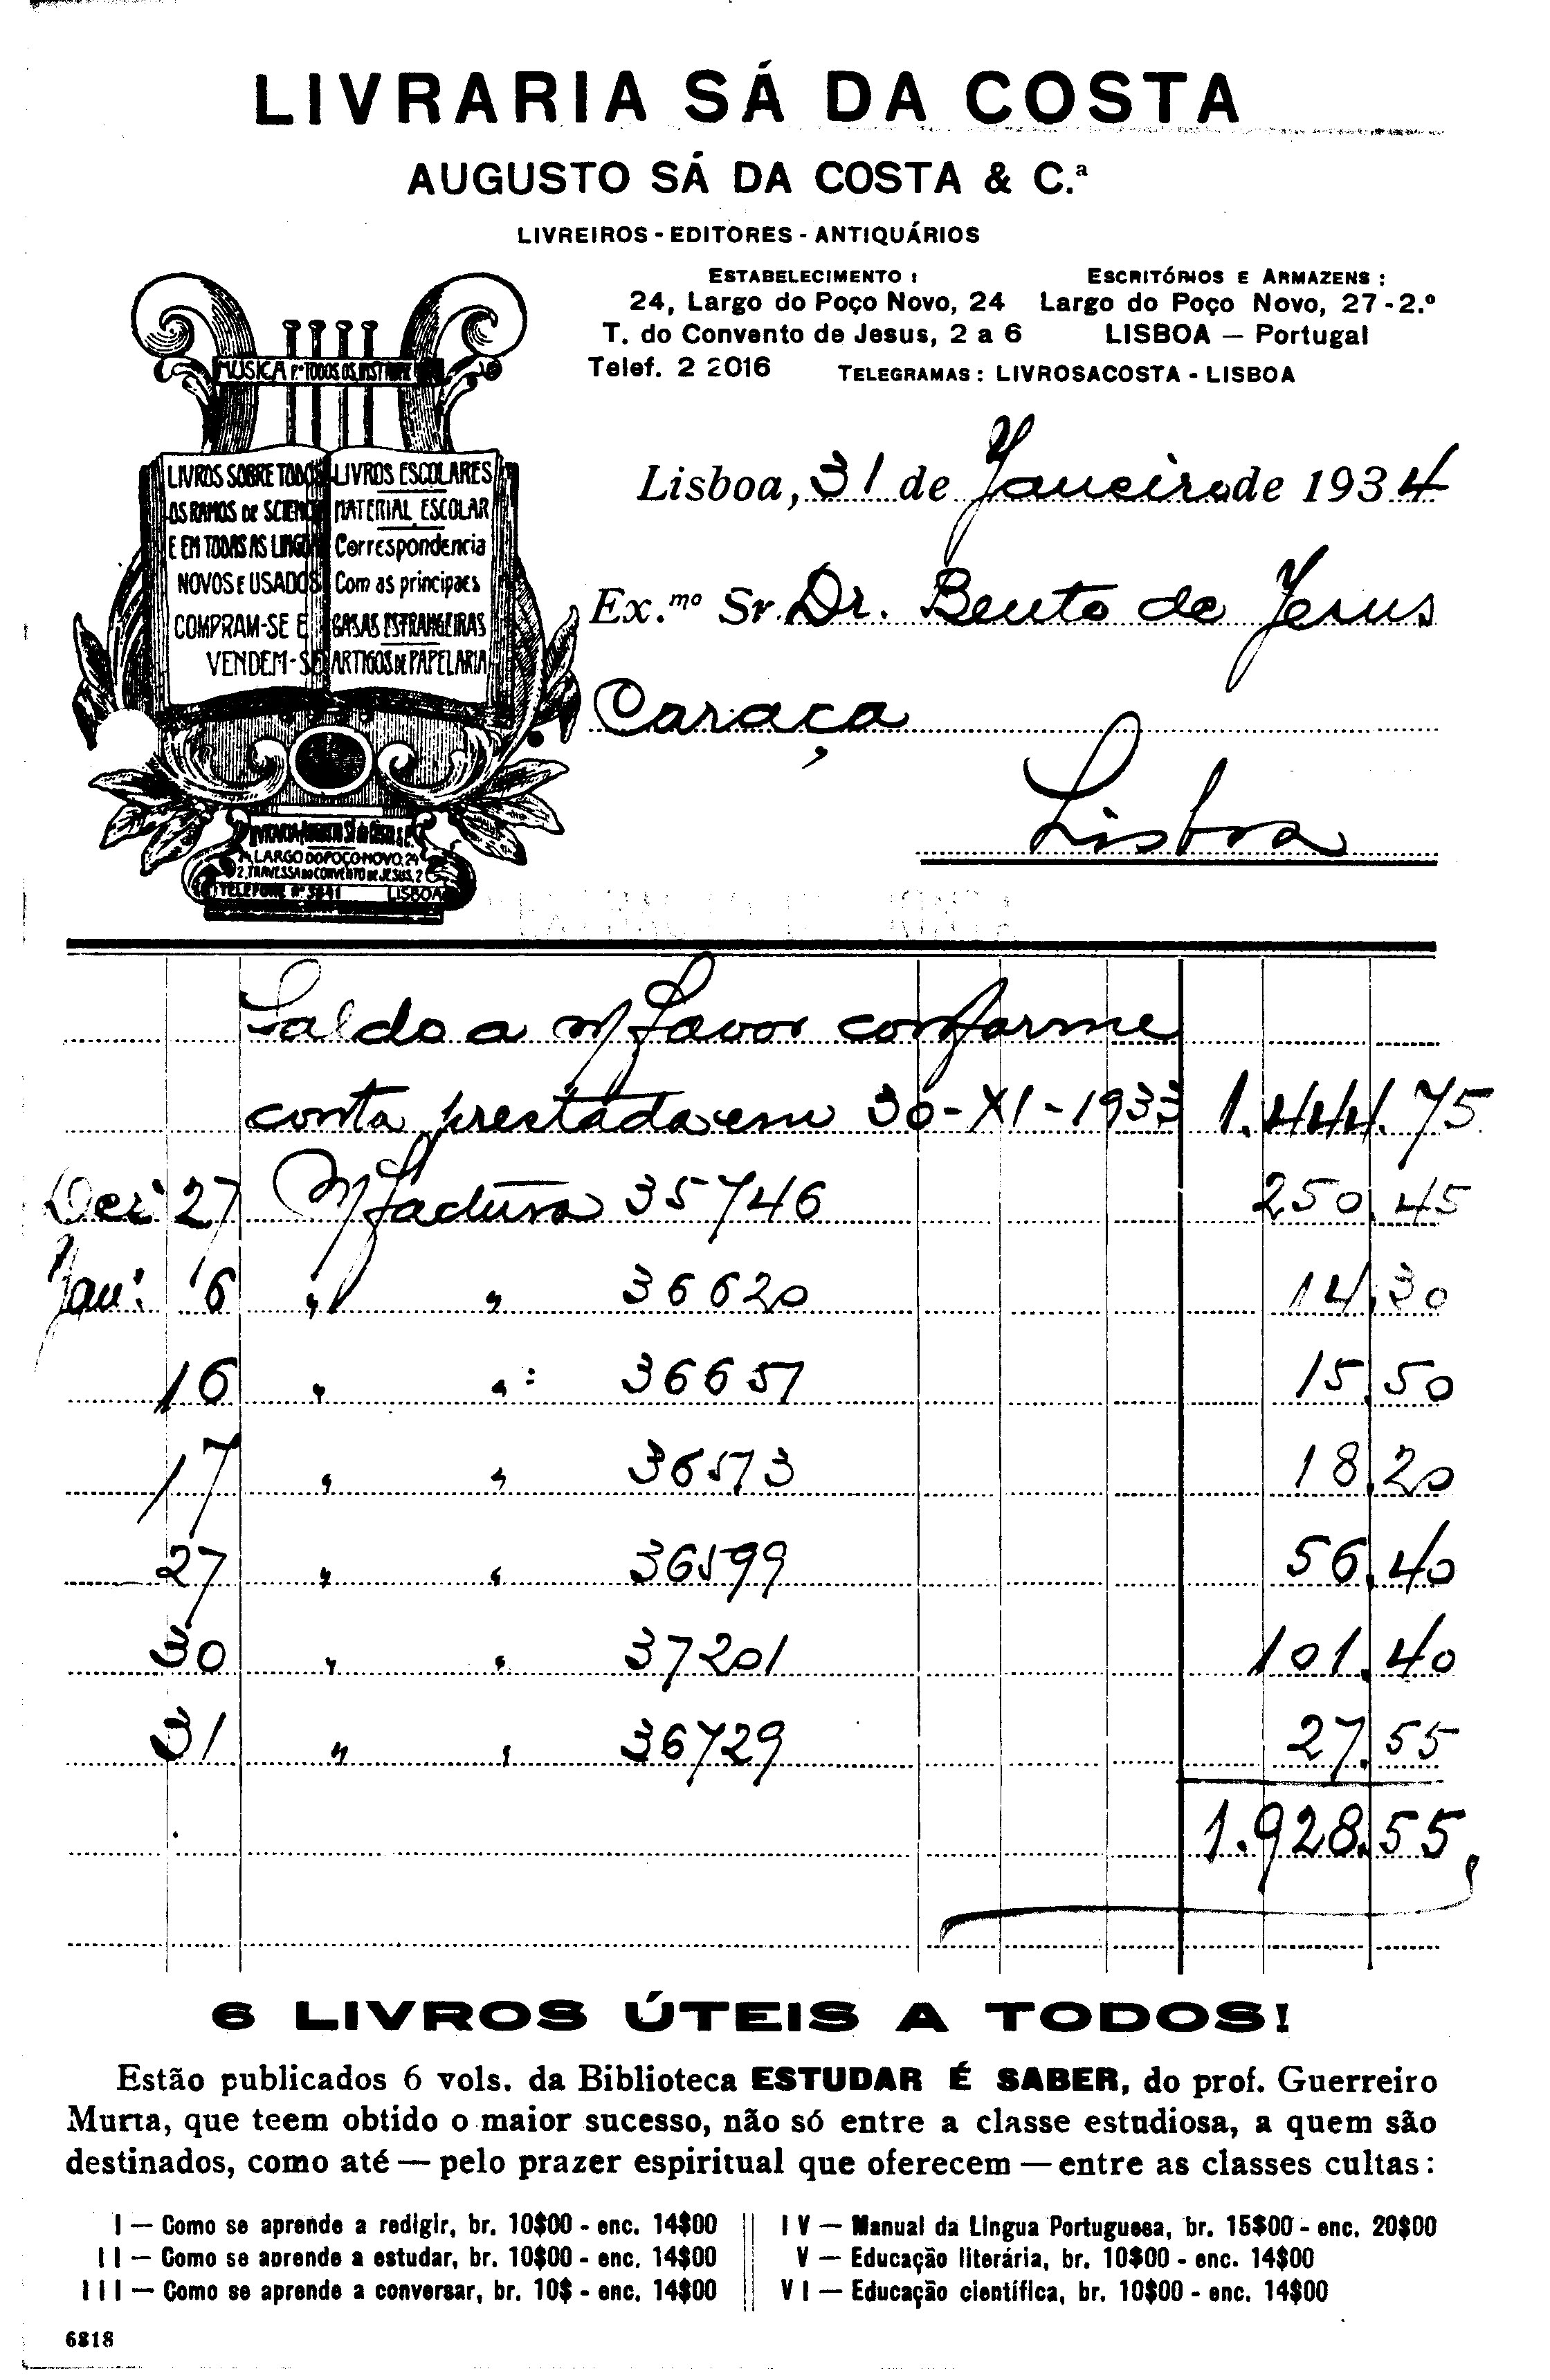 LIVRARIA SÁ DA COSTA
AUGUSTO SÁ DA COSTA & C.ª
LIVREIROS - EDITORES - ANTIQUÁRIOS
ESTABELECIMENTO :
24, Largo do Poço Novo, 24
T. do Convento de Jesus, 2 a 6
Telef. 2 2016
ESCRITÓRIOS E ARMAZENS :
Largo do Poço Novo, 27-2.º
LISBOA — Portugal
TELEGRAMAS : LIVROSACOSTA - LISBOA
MUSICA Pª TODOS OS
LIVROS SOBRE TODOS
OS RAMOS DE SCIENC
E EM TODAS AS LINGO
NOVOS E USADOS
COMPRAM-SE E
VENDEM-SE
LIVROS ESCOLARES
MATERIAL ESCOLAR
Correspondencia
Com as principaes
CASAS ESTRANGEIRAS
ARTIGOS DE PAPELARIA
LARGO DO POÇO NOVO, 24
2, TRAVESSA DO CONVENTO DE JESUS, 2
TELEFONE LISBOA
Lisboa, 31 de Janeiro de 1934
Ex.mo Sr. Dr. Bento de Jesus
Caraça
Lisboa
Saldo a m/ favor conforme
conta prestada em 30-XI-1933 1.444.75
Dez: 27 M/ factura 35746 250.45
Jan: 16 " " 36620 14.30
16 " " : 36651 15.50
17 " " 36573 18.20
27 " " 36599 56.40
30 " " 37201 101.40
31 " " 36729 27.55
1.928.55
6 LIVROS ÚTEIS A TODOS!
Estão publicados 6 vols. da Biblioteca ESTUDAR É SABER, do prof. Guerreiro
Murta, que teem obtido o maior sucesso, não só entre a classe estudiosa, a quem são
destinados, como até — pelo prazer espiritual que oferecem — entre as classes cultas :
I — Como se aprende a redigir, br. 10$00 - enc. 14$00
II — Como se aprende a estudar, br. 10$00 - enc. 14$00
III — Como se aprende a conversar, br. 10$ - enc. 14$00
IV — Manual da Lingua Portuguesa, br. 15$00 - enc. 20$00
V — Educação literária, br. 10$00 - enc. 14$00
VI — Educação cientifica, br. 10$00 - enc. 14$00
6818